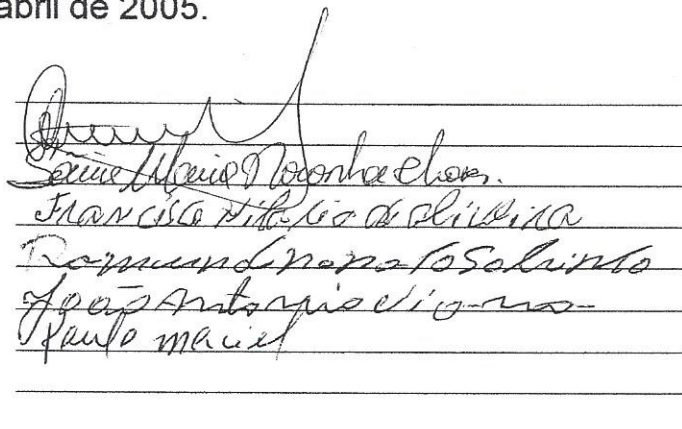 abril de 2005.
Maria Noronha Chaves.
Francisco Hilário de Oliveira
Raimundo nonato Sobrinho
João Antonio Viana
Paulo maciel